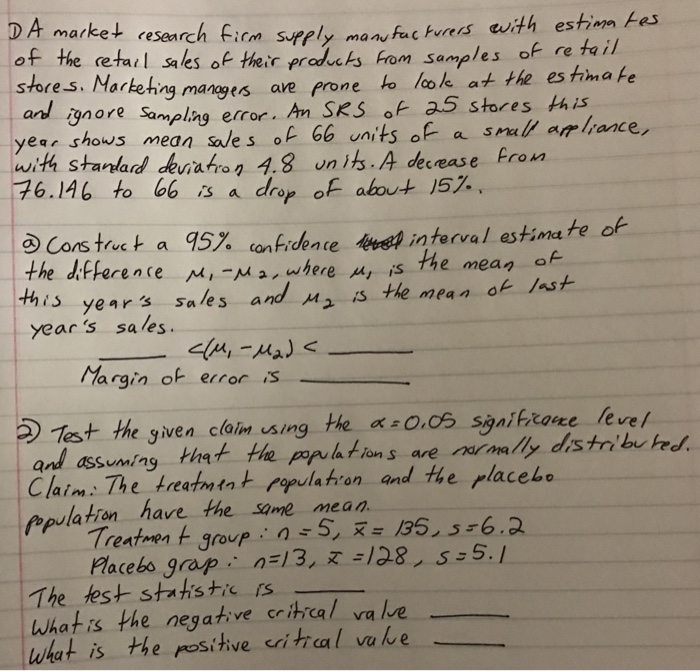 1) A market research firm supply manufacturers with estimates
of the retail sales of their products from samples of retail
stores. Marketing managers are prone to look at the estimate
and ignore sampling error. An SRS of 25 stores this
year shows mean sales of 66 units of a small appliance,
with standard deviation 4.8 units. A decrease from
76.146 to 66 is a drop of about 15%.
a) Construct a 95% confidence interval estimate of
the difference μ₁-μ₂, where μ₁ is the mean of
this year's sales and μ₂ is the mean of last
year's sales.
____ <(μ₁-μ₂)< ____
Margin of error is ____
2) Test the given claim using the α=0.05 significance level
and assuming that the populations are normally distributed.
Claim: The treatment population and the placebo
population have the same mean.
Treatment group: n=5, x̄=135, s=6.2
Placebo grop: n=13, x̄=128, s=5.1
The test statistic is ____
What is the negative critical value ____
What is the positive critical value ____